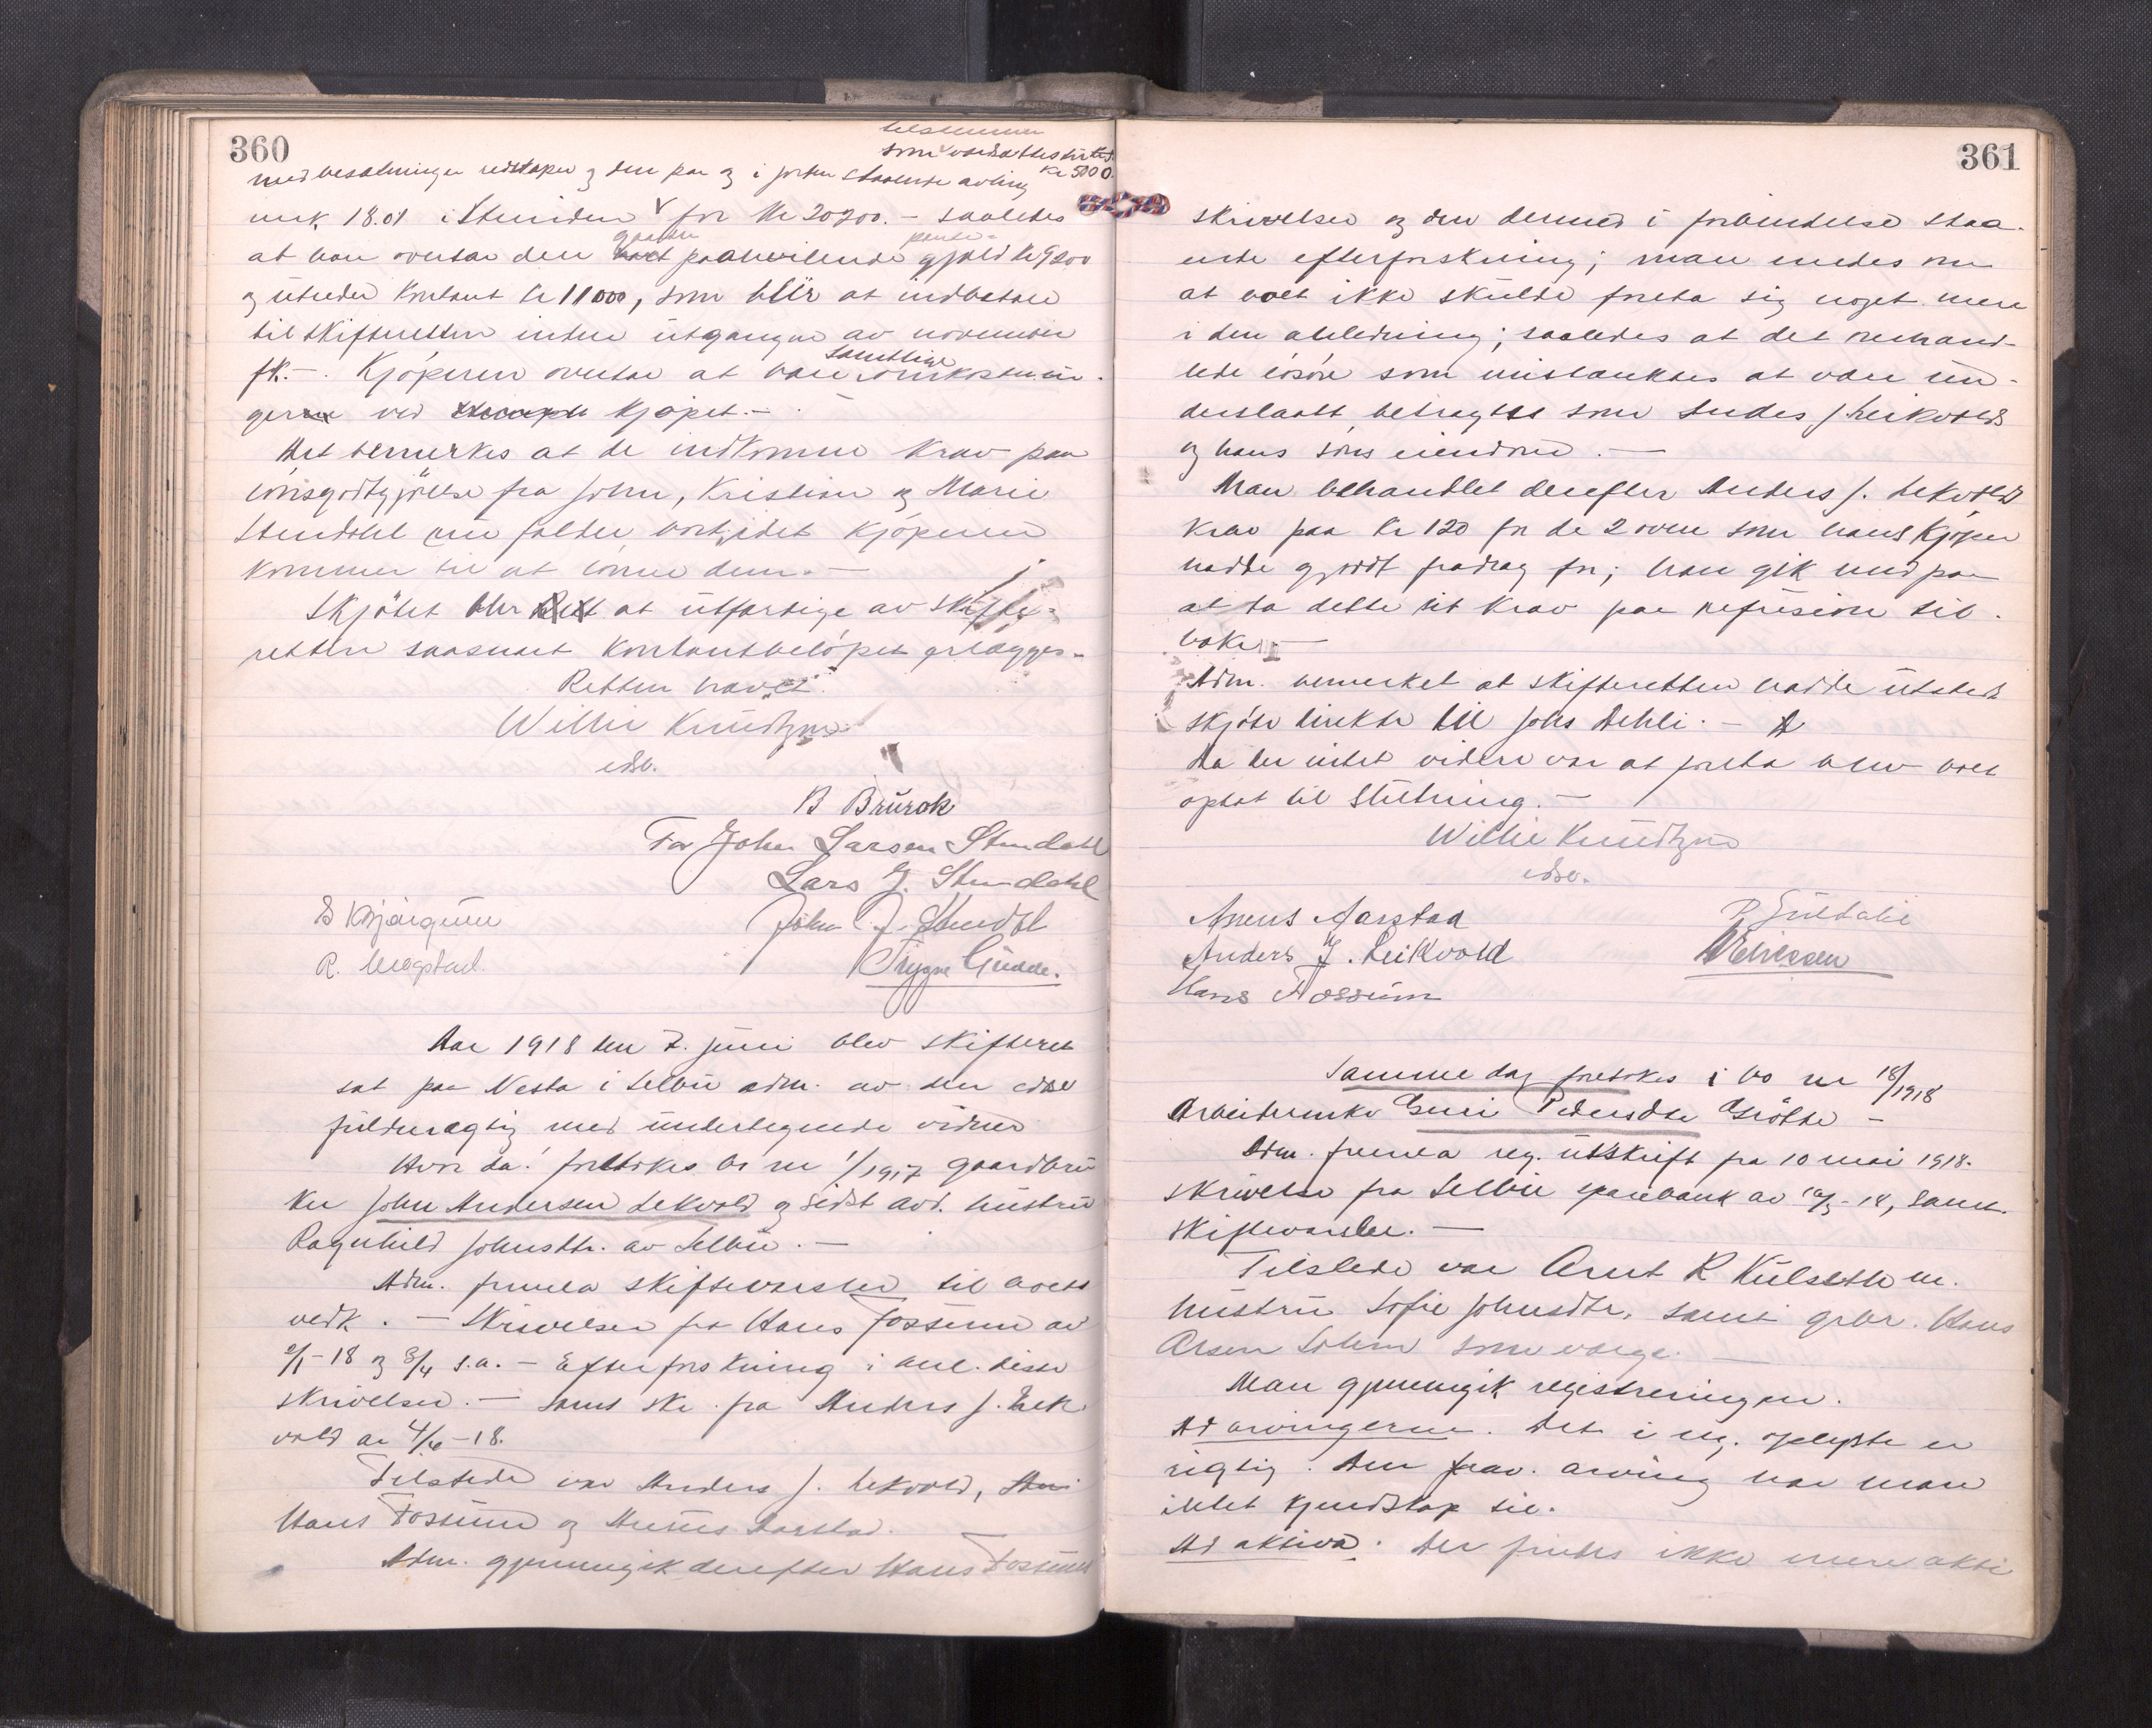 360
tilsammen
som værdsættes til
kr 5000.
med besætninger redskaper og den paa og i jorden staaende avling
urk. 18.01 i Stenden for kr 20200.- saaledes
at han overtar den gaarden boet paahvilende pante- gjæld kr 9200
og utreder kontant kr 11000, som blir at indbetale
til skifteretten inden utgangen av november
fk.-. Kjöperen overtar at bære samtlige omkostnin-
gerne ved kjöpet.-
Det bemerkes at de indkomne krav paa
lönsgodtgjörelse fra John, Kristian og Marie
Stendahl nu falder bort, idet kjöperen
kommer til at lönne dem.-
Skjötet blir at utfærdige av skifte-
retten saasnart kontantbelöpet erlægges-
Retten hævet.
Willie Knudtzon
edsv.
B Brurok
For John Larsen Stendahl
Lars J. Stendahl
E Kjærgum
John J. Stendal
R. Mogstad.
Trygve Gudde.
Aar 1918 den 7. juni blev skifteret
sat paa Nesta i Selbu adm. av den edsv
fuldmægtig med undertegnede vidner
Hvor da! foretokes bo nr 1/1917 gaardbru-
ker John Andersen Lekvold og sidst avd. hustru
Ragnhild Johnsdtr. av Selbu.-
Adm. fremla skiftevarsler til boets
vedk. - Skrivelser fra Hans Fossum av
2/1-18 og 8/4 s.a. - Efterforskning i anl. disse
skrivelser.- Samt skr. fra Anders J. Lek-
vold av 4/6-18.
Tilstede var Anders J. Lekvold,
Hans Fossum og Arnus Aarstad.
Adm. gjennemgik derefter Hans Fossums
361
skrivelser og den dermed i forbindelse staa-
ende efterforskning; man enedes om
at boet ikke skulde foreta sig noget mere
i den anledning; saaledes at det omhand-
lede lösöre som mistænktes at være un-
derslaatt betragtes som Anders J Leikvolds
og hans söns eiendom.-
Man behandlet derefter Anders J. Lekvolds
krav paa kr 120 for de 2 ovne som hans kjöper
hadde gjordt fradrag for; han gik med paa
at ta dette sit krav paa refusion til-
bake.-
Adm. bemerket at skifteretten hadde utstedt
skjöte direkte til Johs Dehli.-
Da der intet videre var at foreta blev boet
optat til slutning.-
Willie Knudtzon
edsv.
Arnus Aarstad
P. Guldalie
Anders J. Leikvold
Hans Fossum
Samme dag foretokes i bo nr 18/1918
Arbeiderenke Guri Pedersdtr Grötte -
Adm. fremla reg. utskrift fra 10 mai 1918.
skrivelse fra Selbu sparebank av 10/5-18, samt
skiftevarsler.-
Tilstede var Arnt R Kulseth m.
hustru Sofie Johnsdtr, samt grbr. Hans
Olsen Solem som værge.-
Man gjennemgik registreringen.
Ad arvingerne. Det i reg. oplyste er
rigtig. Den frav. arving har man
intet kjendskap til.
Ad aktiva. Der findes ikke mere akti-